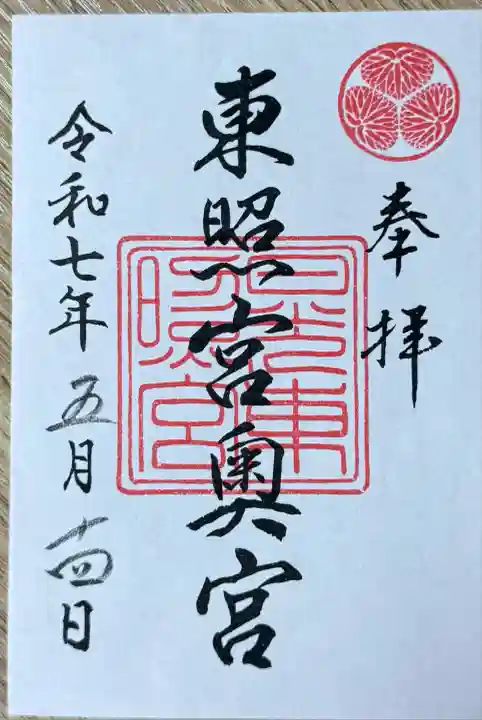 奉拝
東照宮奥宮
日光東照宮
令和七年五月十四日